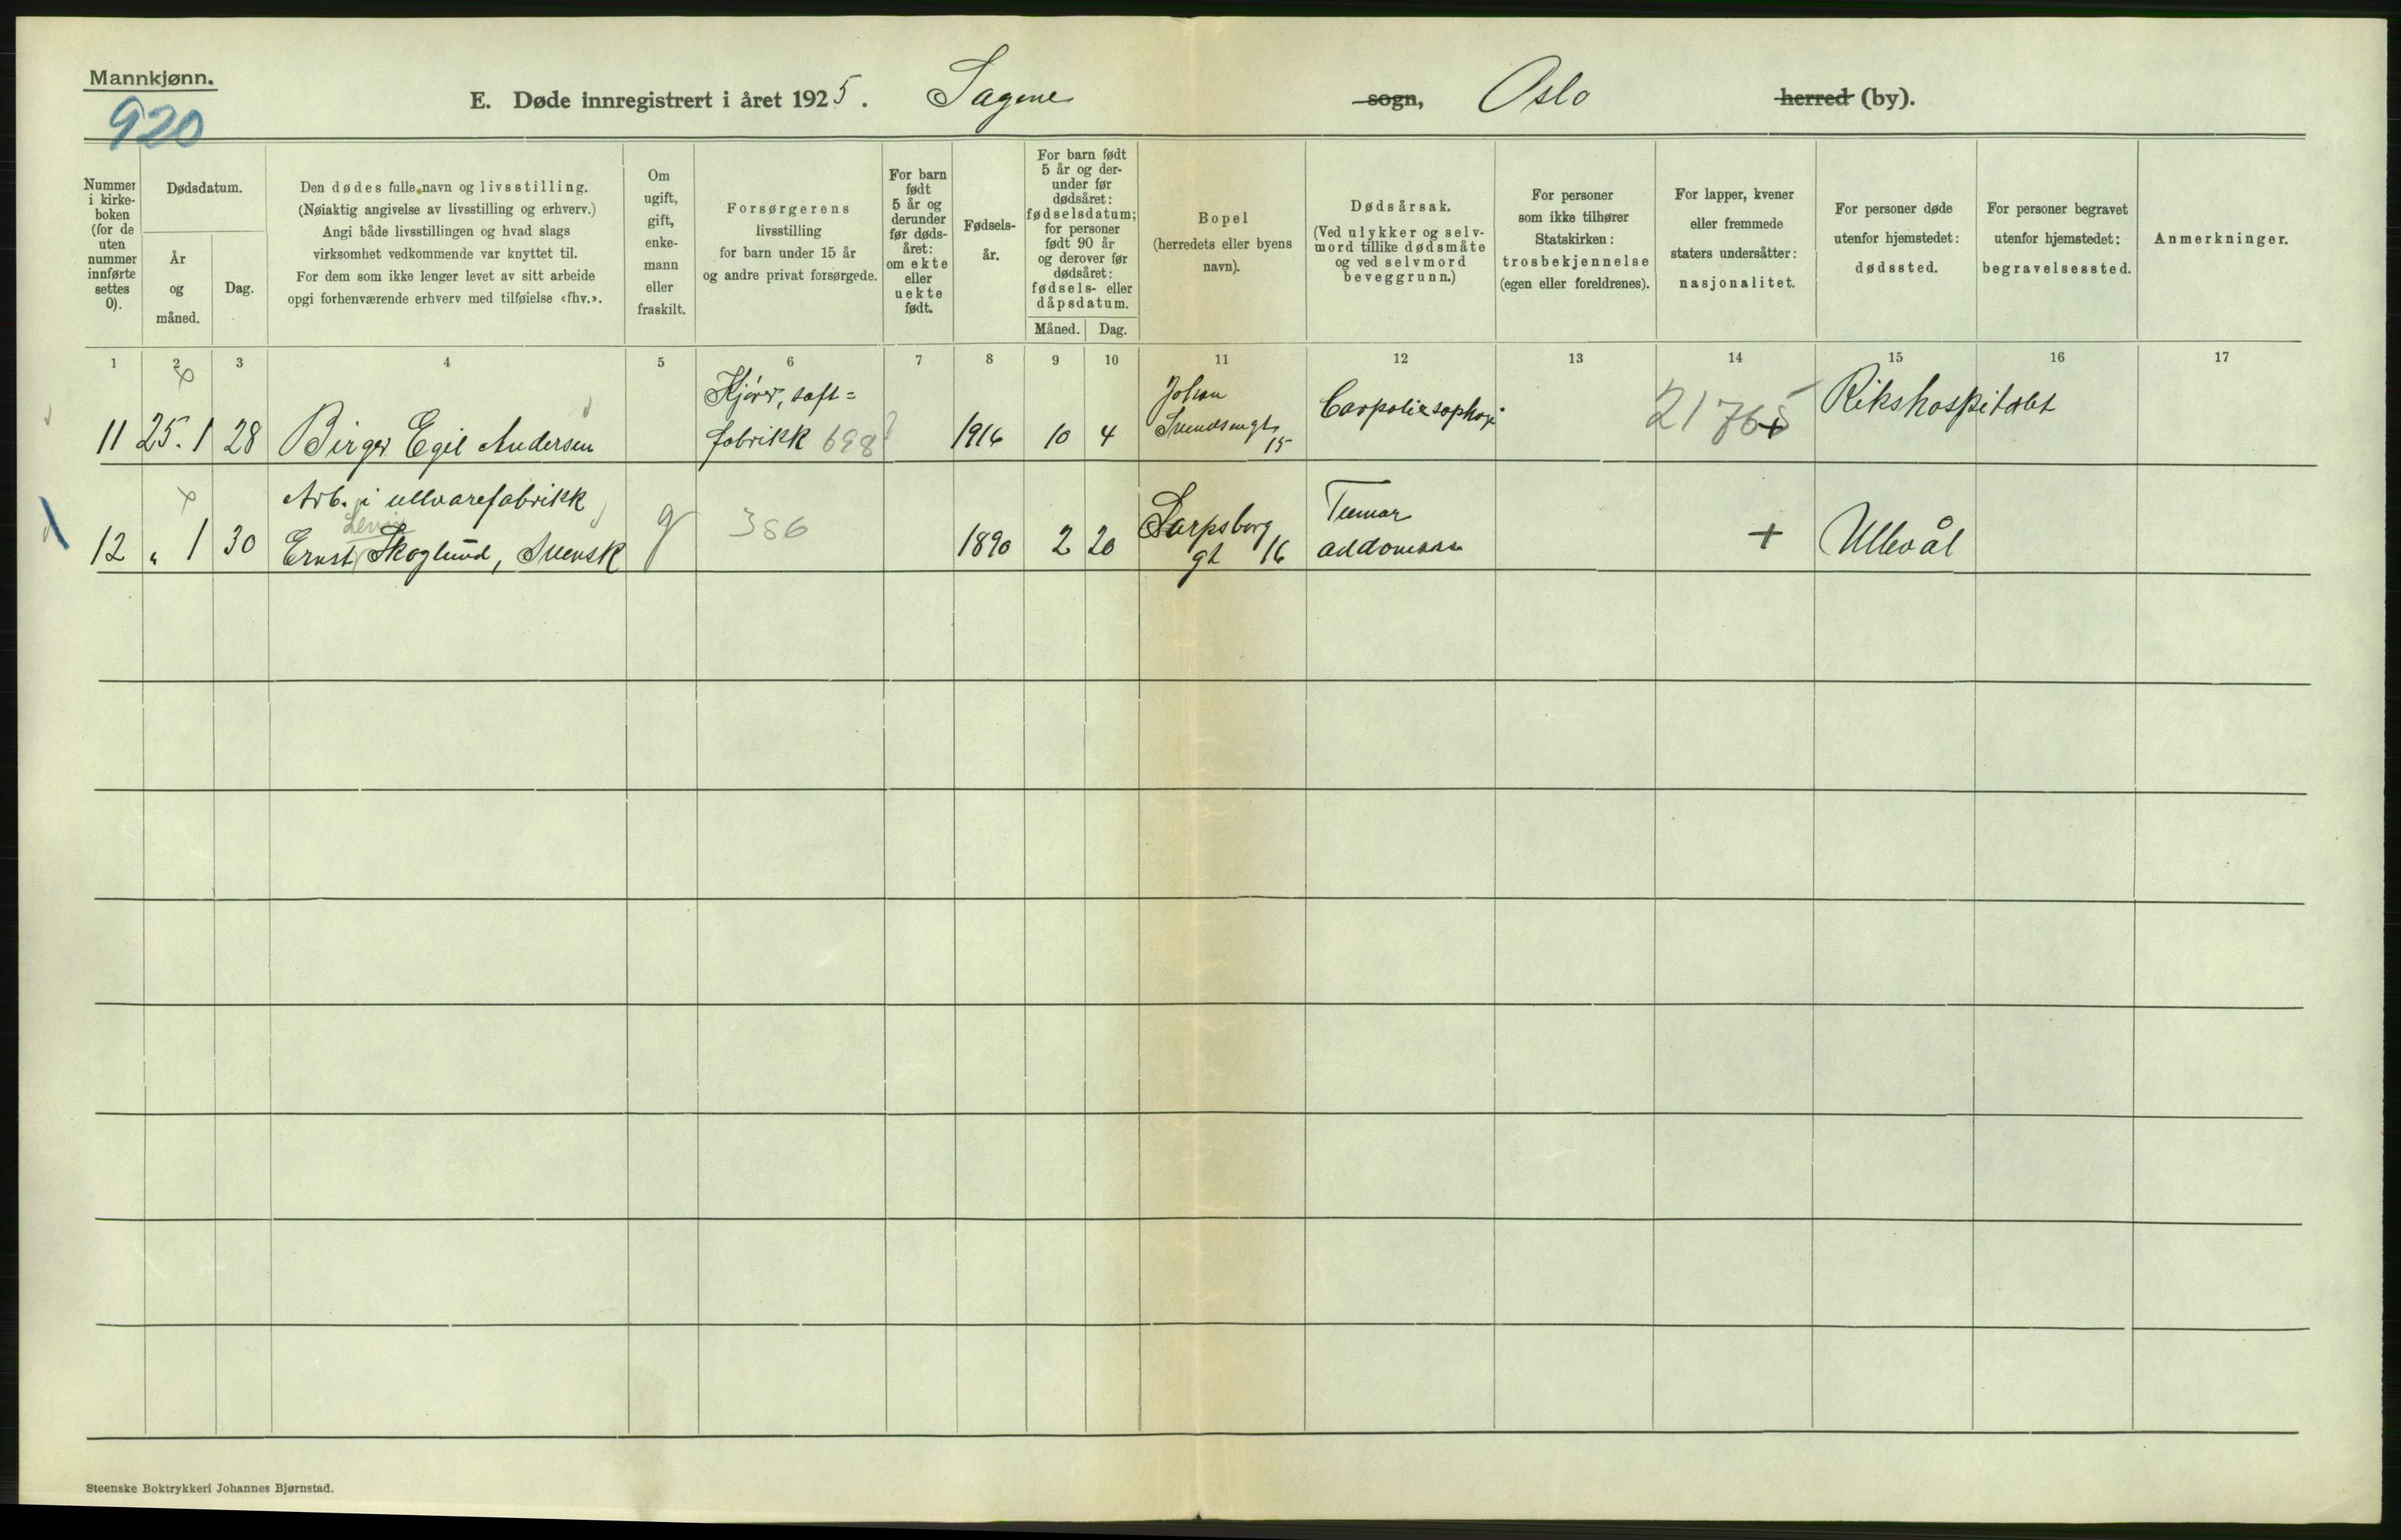 Mannkjønn.
920
E. Døde innregistrert i året 1925. Sagene sogn, Oslo herred (by).
Nummer
i kirke-
boken
(for de
uten
nummer
innførte
settes
0).
Dødsdatum.
År
og
måned.
Dag.
Den dødes fulle navn og livsstilling.
(Nøiaktig angivelse av livsstilling og erhverv.)
Angi både livsstillingen og hvad slags
virksomhet vedkommende var knyttet til.
For dem som ikke lenger levet av sitt arbeide
opgi forhenværende erhverv med tilføielse «fhv.».
Om
ugift,
gift,
enke-
mann
eller
fraskilt.
Forsørgerens
livsstilling
for barn under 15 år
og andre privat forsørgede.
For barn
født
5 år og
derunder
før døds-
året:
om ekte
eller
uekte
født.
Fødsels-
år.
For barn født
5 år og der-
under før
dødsåret:
fødselsdatum;
for personer
født 90 år
og derover før
dødsåret:
fødsels- eller
dåpsdatum.
Måned. Dag.
Bopel
(herredets eller byens
navn).
Dødsårsak.
(Ved ulykker og selv-
mord tillike dødsmåte
og ved selvmord
beveggrunn.)
For personer
som ikke tilhører
Statskirken:
trosbekjennelse
(egen eller foreldrenes).
For lapper, kvener
eller fremmede
staters undersåtter:
nasjonalitet.
For personer døde
utenfor hjemstedet:
dødssted.
For personer begravet
utenfor hjemstedet:
begravelsessted.
Anmerkninger.
1 2 3 4 5 6 7 8 9 10 11 12 13 14 15 16 17
11 25. 1 28 Birger Egil Andersen
Kjører, saft=
fabrikk 698
1916 10 4
Johan
Svendsengt
15
2176
Rikshospitalet
Arb. i ullvarefabrikk
12 " 1 30 Ernst Skoglund, Svensk g 386 1890 2 20
Sarpsborg
gt 16
Tumor
+ Ullevål
Steenske Boktrykkeri Johannes Bjørnstad.